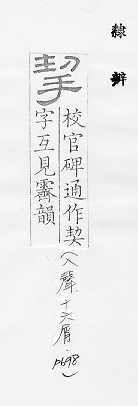 隸辨
挈
校官碑通作契
字互見霽韻
(入聲十六屑.p698)